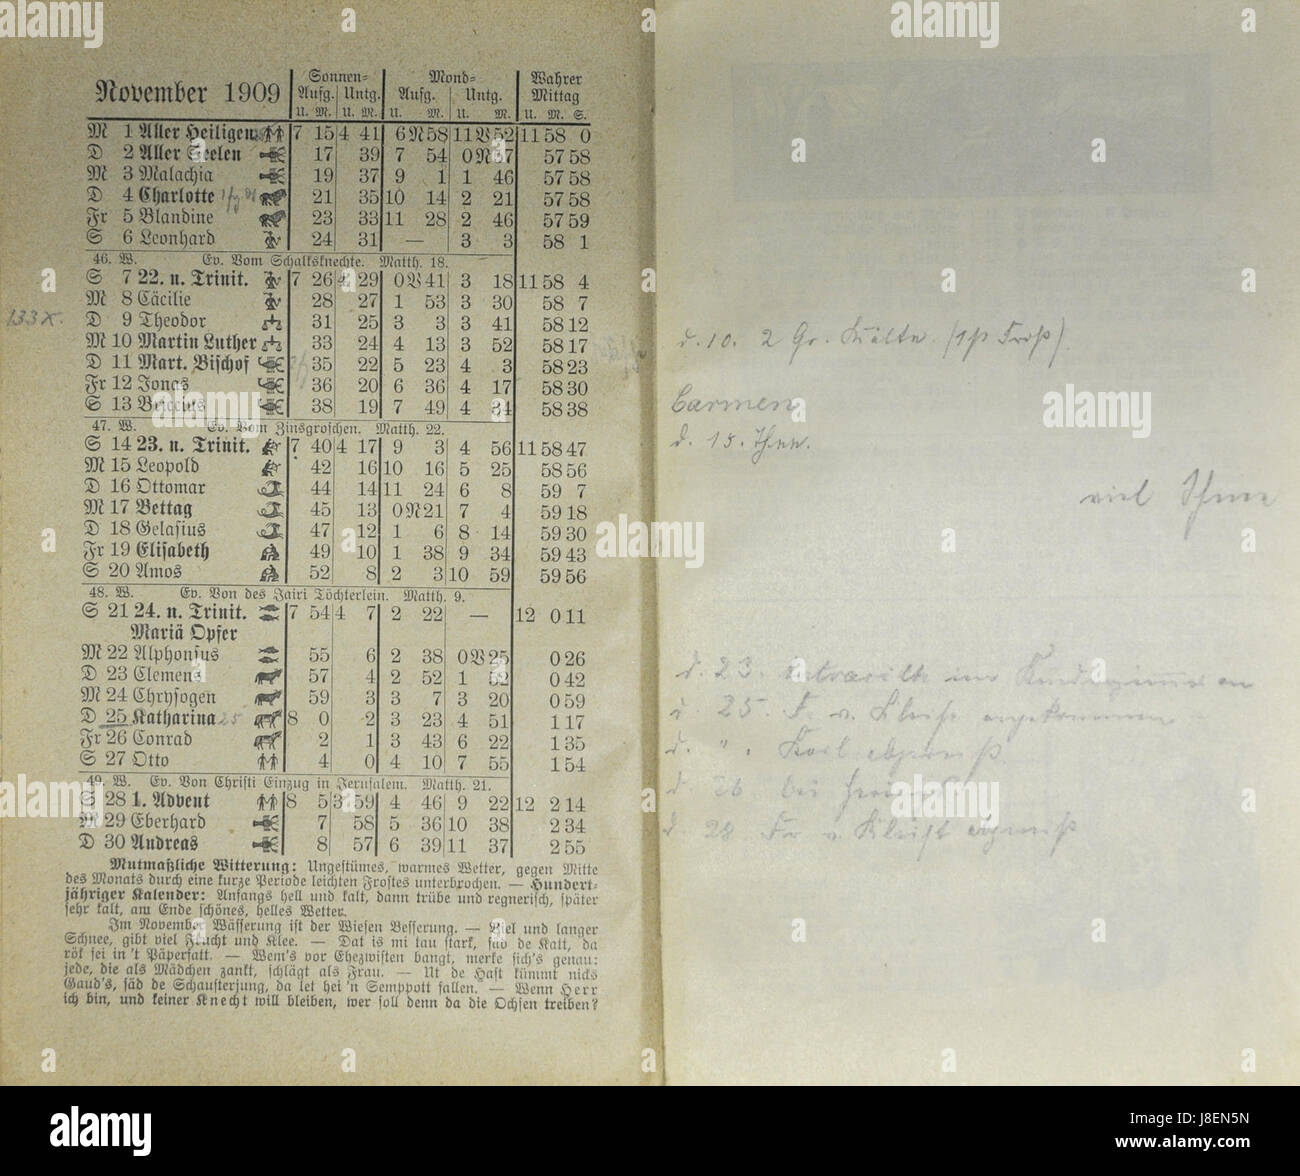 November 1909
Sonnen= Mond= Wahrer
Aufg. Untg. Aufg. Untg. Mittag
U. M. U. M. U. M. U. M. U. M. S.
M 1 Aller Heiligen 7 15 4 41 6 N 58 11 V 52 11 58 0
D 2 Aller Seelen 17 39 7 54 0 N 57 58
M 3 Malachia 19 37 9 1 1 46 57 58
D 4 Charlotte 21 35 10 14 2 21 57 58
Fr 5 Blandine 23 33 11 28 2 46 57 59
S 6 Leonhard 24 31 — 3 3 58 1
46. W. Ev. Vom Schalksknechte. Matth. 18.
S 7 22. n. Trinit. 7 26 4 29 0 V 41 3 18 11 58 4
M 8 Cäcilie 28 27 1 53 3 30 58 7
133 x.
D 9 Theodor 31 25 3 3 3 41 58 12
M 10 Martin Luther 33 24 4 13 3 52 58 17
D 11 Mart. Bischof 35 22 5 23 4 3 58 23
Fr 12 Jonas 36 20 6 36 4 17 58 30
S 13 Briccius 38 19 7 49 4 34 58 38
47. W. Ev. Vom Zinsgroschen. Matth. 22.
S 14 23. n. Trinit. 7 40 4 17 9 3 4 56 11 58 47
M 15 Leopold 42 16 10 16 5 25 58 56
D 16 Ottomar 44 14 11 24 6 8 59 7
M 17 Bettag 45 13 0 N 21 7 4 59 18
D 18 Gelasius 47 12 1 6 8 14 59 30
Fr 19 Elisabeth 49 10 1 38 9 34 59 43
S 20 Amos 52 8 2 3 10 59 59 56
48. W. Ev. Von des Jairi Töchterlein. Matth. 9.
S 21 24. n. Trinit. 7 54 4 7 2 22 — 12 0 11
Mariä Opfer
M 22 Alphonsus 55 6 2 38 0 V 25 0 26
D 23 Clemens 57 4 2 52 1 52 0 42
M 24 Chrysogen 59 3 3 7 3 20 0 59
D 25 Katharina 25 8 0 2 3 23 4 51 1 17
Fr 26 Conrad 2 1 3 43 6 22 1 35
S 27 Otto 4 0 4 10 7 55 1 54
49. W. Ev. Von Christi Einzug in Jerusalem. Matth. 21.
S 28 1. Advent 8 5 3 59 4 46 9 22 12 2 14
M 29 Eberhard 7 58 5 36 10 38 2 34
D 30 Andreas 8 57 6 39 11 37 2 55
Mutmaßliche Witterung: Ungestümes, warmes Wetter, gegen Mitte
des Monats durch eine kurze Periode leichten Frostes unterbrochen. — Hundert=
jähriger Kalender: Anfangs hell und kalt, dann trübe und regnerisch, später
sehr kalt, am Ende schönes, helles Wetter.
Im November Wässerung ist der Wiesen Besserung. — Viel und langer
Schnee, gibt viel Frucht und Klee. — Dat is mi tau stark, säd de Katt, da
rök sei in't Päperfatt. — Wem's vor Ehezwisten bangt, merke sich's genau:
jede, die als Mädchen zankt, schlägt als Frau. — Ut de Hast kümmt nicks
Gaud's, säd de Schausterjung, da let hei 'n Semppott fallen. — Wenn Herr
ich bin, und keiner Knecht will bleiben, wer soll denn da die Ochsen treiben?
d. 10. 2 Gr. Kälte. (1st Frost).
Carmen
d. 15.
viel
d. 23. im
d. 25. F. v. Kleist angekommen
d. " . Karl abgereist
d. 26 bei
d. 28 Fr v. Kleist abgereist
alamy
Image ID: J8EN5N
www.alamy.com